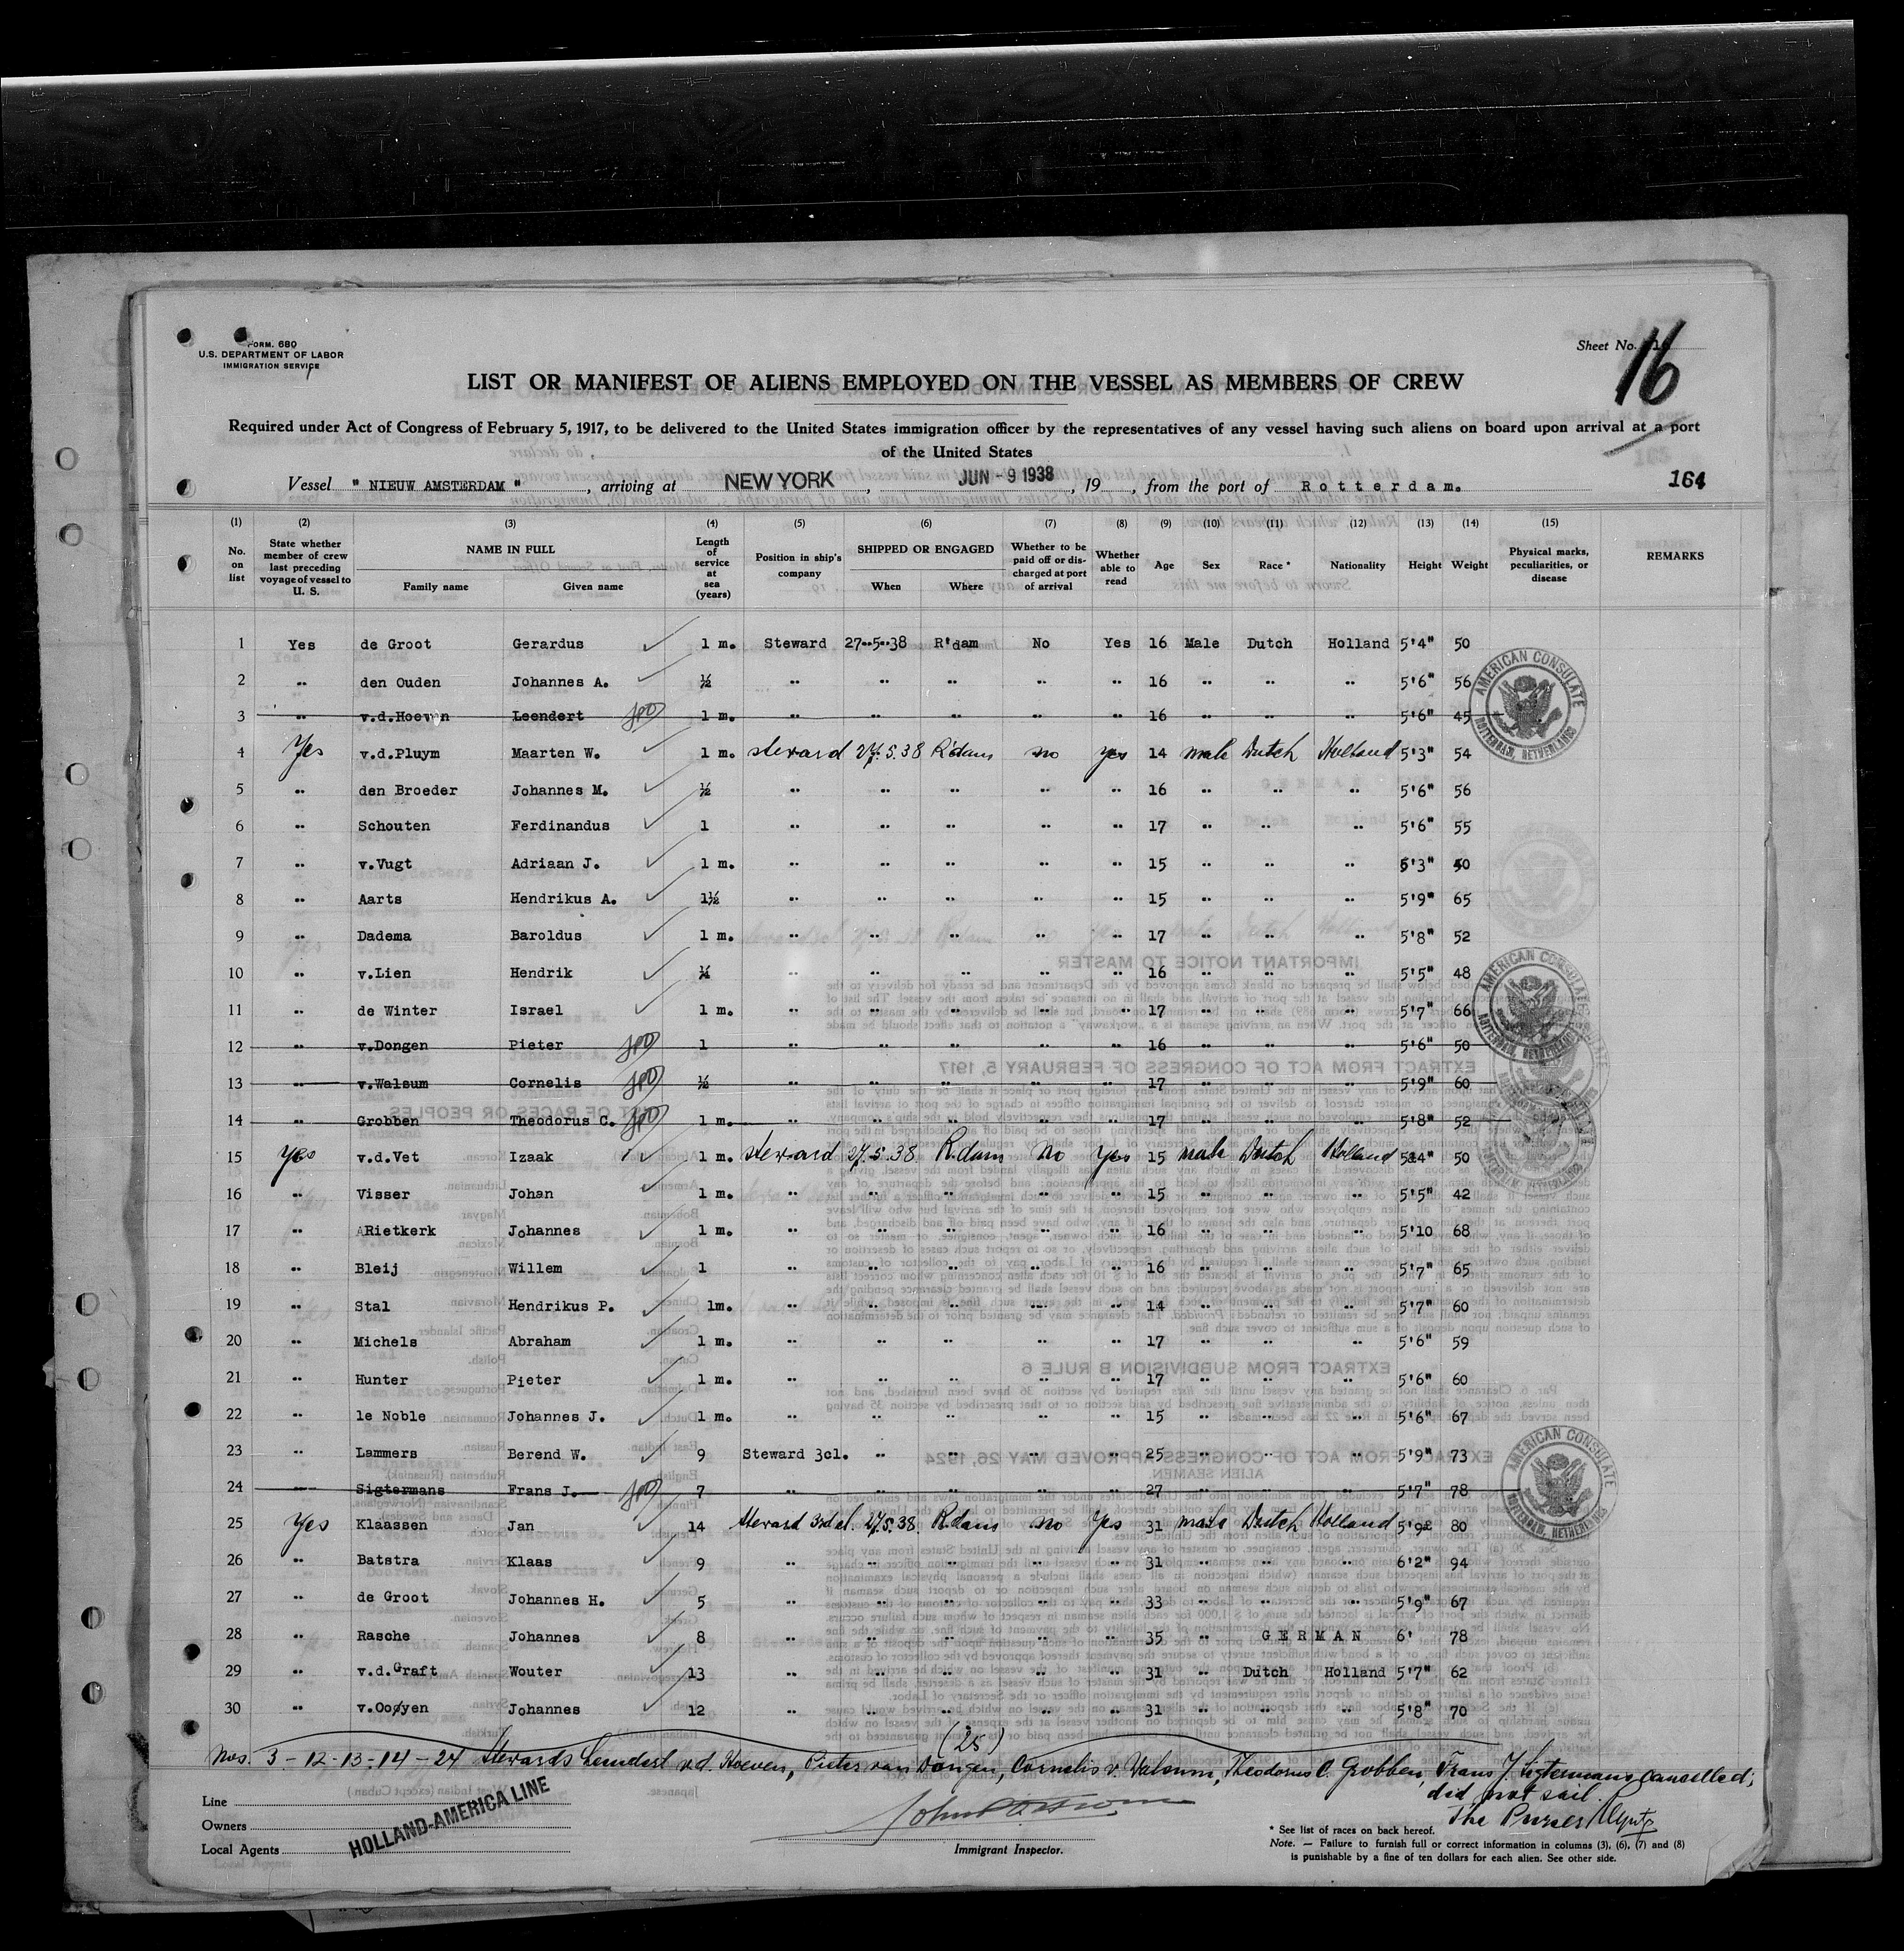 FORM. 680
U.S. DEPARTMENT OF LABOR
IMMIGRATION SERVICE
Sheet No. 16
16
LIST OR MANIFEST OF ALIENS EMPLOYED ON THE VESSEL AS MEMBERS OF CREW
Required under Act of Congress of February 5, 1917, to be delivered to the United States immigration officer by the representatives of any vessel having such aliens on board upon arrival at a port
of the United States
Vessel " NIEUW AMSTERDAM " , arriving at NEW YORK , JUN - 9 1938 , 19 , from the port of Rotterdam. 164
(1) (2) (3) (4) (5) (6) (7) (8) (9) (10) (11) (12) (13) (14) (15)
No. on list State whether member of crew last preceding voyage of vessel to U. S. NAME IN FULL Family name Given name Length of service at sea (years) Position in ship's company SHIPPED OR ENGAGED When Where Whether to be paid off or discharged at port of arrival Whether able to read Age Sex Race * Nationality Height Weight Physical marks, peculiarities, or disease REMARKS
1 Yes de Groot Gerardus 1 m. Steward 27-5-38 R'dam No Yes 16 Male Dutch Holland 5'4" 50
2 " den Ouden Johannes A. ½ " " " " " 16 " " " 5'6" 56
3 " v.d.Hoeven Leendert 1 m. " " " " " 16 " " " 5'6" 45
4 Yes v.d.Pluym Maarten W. 1 m. steward 27.5.38 R'dam no yes 14 male Dutch Holland 5'3" 54
5 " den Broeder Johannes M. ½ " " " " " 16 " " " 5'6" 56
6 " Schouten Ferdinandus 1 " " " " " 17 " " " 5'6" 55
7 " v.Vugt Adriaan J. 1 m. " " " " " 15 " " " 5'3" 40
8 " Aarts Hendrikus A. 1½ " " " " " 15 " " " 5'9" 65
9 " Dadema Baroldus 1 m. " " " " " 17 " " " 5'8" 52
10 " v.Lien Hendrik " " " " " 16 " " " 5'5" 48
11 " de Winter Israel 1 m. " " " " " 17 " " " 5'7" 66
12 " v.Dongen Pieter 1 " " " " " 16 " " " 5'6" 50
13 " v.Walsum Cornelis ½ " " " " " 17 " " " 5'9" 60
14 " Grobben Theodorus C. 1 m. " " " " " 17 " " " 5'8" 52
15 Yes v.d.Vet Izaak 1 m. steward 27.5.38 R.dam No Yes 15 male Dutch Holland 5'4" 50
16 " Visser Johan 1 m. " " " " " 15 " " " 5'5" 42
17 " Rietkerk Johannes 1 m. " " " " " 16 " " " 5'10 68
18 " Bleij Willem 1 " " " " " 16 " " " 5'7" 65
19 " Stal Hendrikus P. 1m. " " " " " 14 " " " 5'7" 60
20 " Michels Abraham 1 m. " " " " " 17 " " " 5'6" 59
21 " Hunter Pieter 1 m. " " " " " 17 " " " 5'6" 60
22 " le Noble Johannes J. 1 m. " " " " " 15 " " " 5'6" 67
23 " Lammers Berend W. 9 Steward 3cl. " " " " 25 " " " 5'9" 73
24 " Sigtermans Frans J. 7 " " " " " 27 " " " 5'7" 78
25 Yes Klaassen Jan 14 Steward 3rd cl. 27.5.38. R.dam no Yes 31 male Dutch Holland 5'9" 80
26 " Batstra Klaas 9 " " " " " 31 " " " 6'2" 94
27 " de Groot Johannes H. 5 " " " " " 33 " " " 5'9" 67
28 " Rasche Johannes 8 " " " " " 35 " GERMAN 6' 78
29 " v.d.Graft Wouter 13 " " " " " 31 " Dutch Holland 5'7" 62
30 " v.Ooyen Johannes 12 " " " " " 31 " " " 5'8" 70
(25)
Nos. 3 - 12 - 13 - 14 - 24 Stewards Leendert v.d. Hoeven, Pieter van Dongen, Cornelis v. Walsum, Theodorus C. Grobben, Frans J. Sigtermans cancelled;
did not sail.
The Purser
Line
Owners
Local Agents
HOLLAND-AMERICA LINE
Immigrant Inspector.
* See list of races on back hereof.
Note. — Failure to furnish full or correct information in columns (3), (6), (7) and (8)
is punishable by a fine of ten dollars for each alien. See other side.
AMERICAN CONSULATE
ROTTERDAM, NETHERLANDS
AMERICAN CONSULATE
ROTTERDAM, NETHERLANDS
AMERICAN CONSULATE
ROTTERDAM, NETHERLANDS